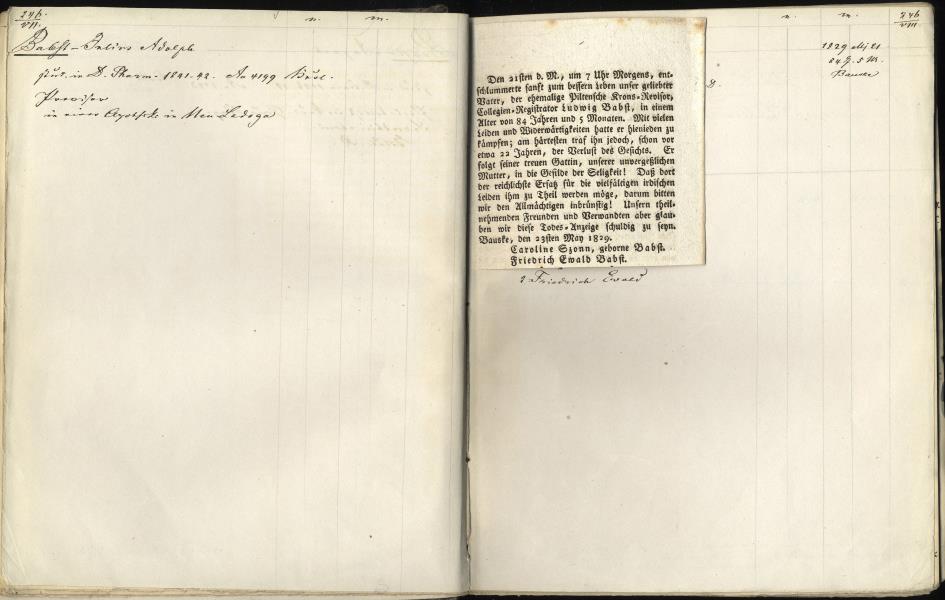 246.
VIII.
n.
m.
Babst - Julius Adolph
stud. in D. Pharm. 1841.42. No 4199
Provisor
in einer Apotheke in Neu Ladoga
n.
m.
246
VIII.
1829 Mj 21
84 J. 5 M.
Bauske
Den 21sten d. M., um 7 Uhr Morgens, ent-
schlummerte sanft zum bessern Leben unser geliebter
Vater, der ehemalige Piltensche Krons-Revisor,
Collegien-Registrator Ludwig Babst, in einem
Alter von 84 Jahren und 5 Monaten. Mit vielen
Leiden und Widerwärtigkeiten hatte er hienieden zu
kämpfen; am härtesten traf ihn jedoch, schon vor
etwa 22 Jahren, der Verlust des Gesichts. Er
folgt seiner treuen Gattin, unserer unvergeßlichen
Mutter, in die Gefilde der Seligkeit! Daß dort
der reichlichste Ersatz für die vielfältigen irdischen
Leiden ihm zu Theil werden möge, darum bitten
wir den Allmächtigen inbrünstig! Unsern theil-
nehmenden Freunden und Verwandten aber glau-
ben wir diese Todes-Anzeige schuldig zu seyn.
Bauske, den 23sten May 1829.
Caroline Szonn, geborne Babst.
Friedrich Ewald Babst.
2 Friedrich Ewald